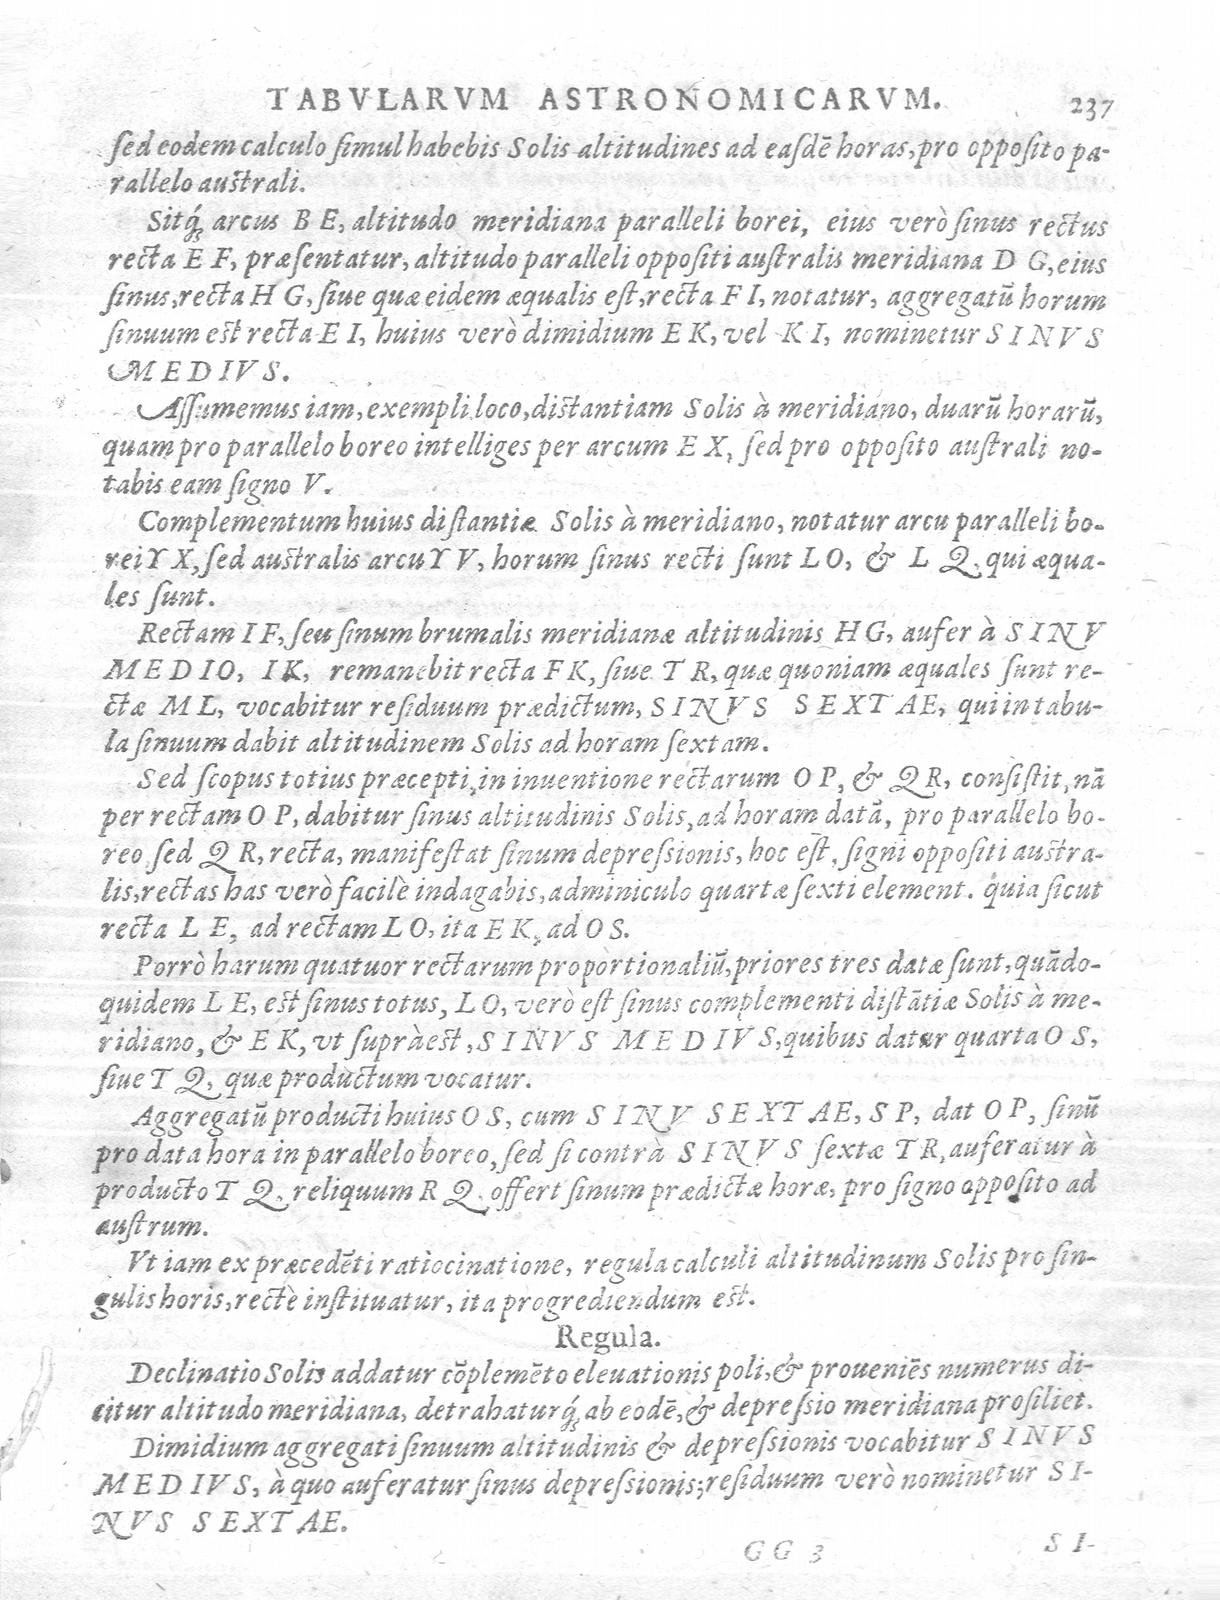 TABVLARVM ASTRONOMICARVM. 237
ſed eodem calculo ſimul habebis Solis altitudines ad eaſdē horas, pro oppoſito pa-
rallelo auſtrali.
Sitq́ꝫ arcus B E, altitudo meridiana paralleli borei, eius verò ſinus rectus
recta E F, præſentatur, altitudo paralleli oppoſiti auſtralis meridiana D G, eius
ſinus, recta H G, ſiue quæ eidem æqualis eſt, recta F I, notatur, aggregatū horum
ſinuum eſt recta E I, huius verò dimidium E K, vel K I, nominetur S I N V S
M E D I V S.
Aſſumemus iam, exempli loco, diſtantiam Solis à meridiano, duarū horarū,
quam pro parallelo boreo intelliges per arcum E X, ſed pro oppoſito auſtrali no-
tabis eam ſigno V.
Complementum huius diſtantiæ Solis à meridiano, notatur arcu paralleli bo-
rei Y X, ſed auſtralis arcu Y V, horum ſinus recti ſunt L O, & L Q, qui æqua-
les ſunt.
Rectam I F, ſeu ſinum brumalis meridianæ altitudinis H G, aufer à S I N V
M E D I O, I K, remanebit recta F K, ſiue T R, quæ quoniam æquales ſunt re-
ctæ M L, vocabitur reſiduum prædictum, S I N V S S E X T AE, qui in tabu-
la ſinuum dabit altitudinem Solis ad horam ſextam.
Sed ſcopus totius præcepti, in inuentione rectarum O P, & Q R, conſiſtit, nā
per rectam O P, dabitur ſinus altitudinis Solis, ad horam datā, pro parallelo bo-
reo ſed Q R, recta, manifeſtat ſinum depreſsionis, hoc eſt, ſigni oppoſiti auſtra-
lis, rectas has verò facilè indagabis, adminiculo quartæ ſexti element. quia ſicut
recta L E, ad rectam L O, ita E K, ad O S.
Porrò harum quatuor rectarum proportionaliū, priores tres datæ ſunt, quādo-
quidem L E, eſt ſinus totus, L O, verò eſt ſinus complementi diſtātiæ Solis à me-
ridiano, & E K, vt ſupràeſt, S I N V S M E D I V S, quibus datur quarta O S,
ſiue T Q, quæ productum vocatur.
Aggregatū producti huius O S, cum S I N V S E X T AE, S P, dat O P, ſinū
pro data hora in parallelo boreo, ſed ſi contrà S I N V S ſextæ T R, auferatur à
producto T Q, reliquum R Q, offert ſinum prædictæ horæ, pro ſigno oppoſito ad
auſtrum.
Vt iam ex præcedēti ratiocinatione, regula calculi altitudinum Solis pro ſin-
gulis horis, rectè inſtituatur, ita progrediendum eſt.
Regula.
Declinatio Solis addatur cōplemēto eleuationis poli, & proueniēs numerus di-
citur altitudo meridiana, detrahaturq́ꝫ ab eodē, & depreſsio meridiana proſiliet.
Dimidium aggregati ſinuum altitudinis & depreſsionis vocabitur S I N V S
M E D I V S, à quo auferatur ſinus depreſsionis; reſiduum verò nominetur S I-
N V S S E X T AE.
G G 3 S I-